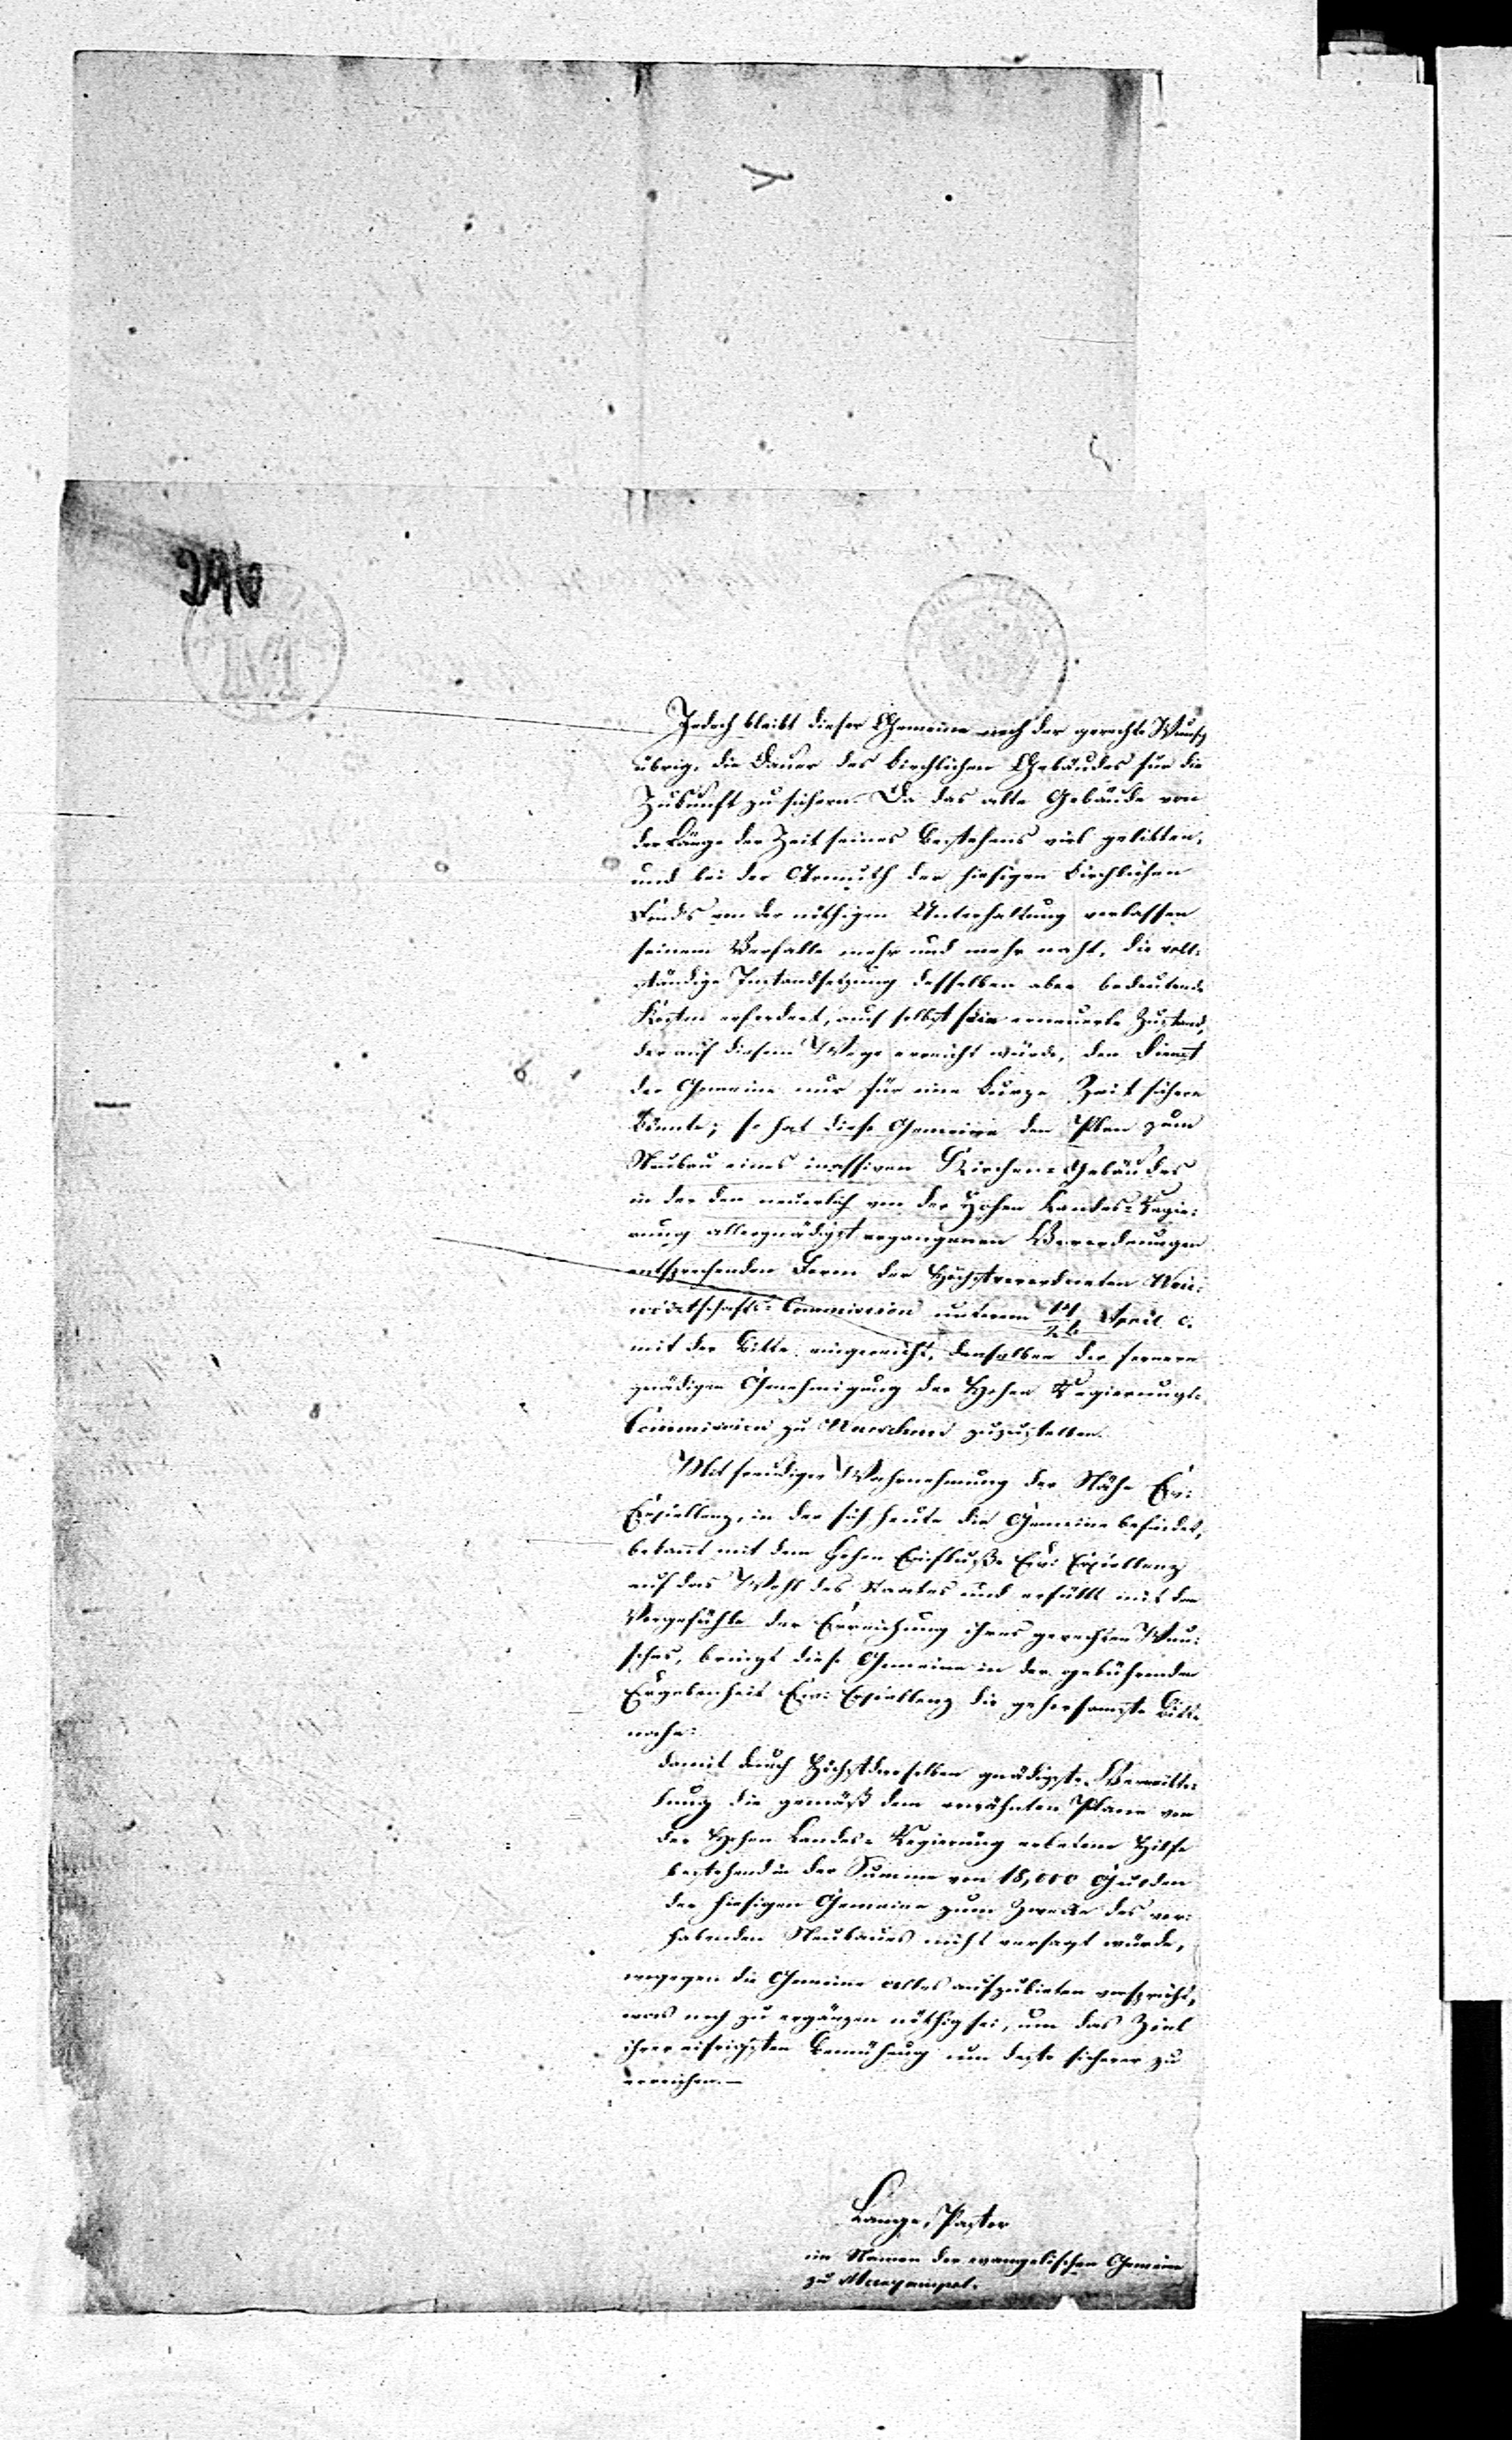 Jedoch bleibt dieser Gemeine noch der gerechte Wunsch
übrig, die Dauer des kirchlichen Gebäudes für die
Zukunft zu sichern. Da das alte Gebäude von
der Länge der Zeit seines Bestehens viel gelitten,
und bei der Armuth der hiesigen kirchlichen
Fonds von der nöthigen Unterhaltung verlassen
seinem Verfalle mehr und mehr naht, die voll-
ständige Instandsetzung desselben aber bedeutende
Kosten erfordert, auch selbst sein erneuerte Zustand,
der auf diesem Wege erreicht würde, den Dienst
der Gemeine nur für eine kurze Zeit sichern
könnte; so hat diese Gemeine den Plan zum
Neubau eines massiven Kirchen-Gebäudes
in der den neuerlich von der Hohen Landes-Regie-
rung allergnädigst ergangenen Verordnungen
entsprechenden Form der Höchstverordneten Woi-
wodtschafts-Commission unterm 14/26 April c.
mit der Bitte eingereicht, denselben der fernern
gnädigen Genehmigung der Hohen Regierungs-
Commission zu Warschau zuzustellen.
Mit freudiger Wahrnehmung der Nähe Ew:
Exzellenz, in der sich heute die Gemeine befindet,
bekannt mit dem hohen Einfluße Ew: Exzellenz
auf das Wohl des Staates und erfüllt mit dem
Vorgefühle der Erreichung ihres gerechten Wun-
sches, bringt diese Gemeine in der gebührenden
Ergebenheit Ew: Exzellenz die gehorsamste Bitte
nahe:
damit durch Höchstderselben gnädigste Vermitte-
lung die gemäß dem erwähnten Plane von
der Hohen Landes-Regierung erbetene Hilfe
bestehend in der Summe von 18,000 Gulden
der hiesigen Gemeine zum Zwecke des vor-
habenden Neubaues nicht versagt würde,
wogegen die Gemeine alles aufzubieten verspricht,
was noch zu ergänzen nöthig sei, um das Ziel
ihrer eifrigsten Bemühung um desto sicherer zu
erreichen.—
Lange, Pastor
im Namen der evangelischen Gemeine
zu Maryampol.